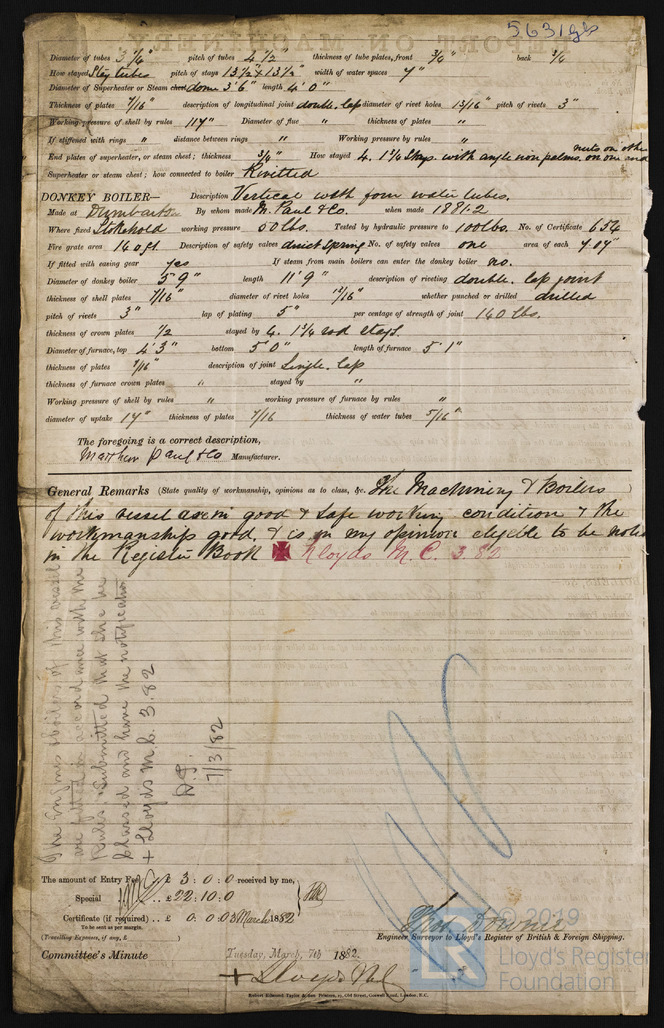 5631 Gls
REPORT ON MACHINERY
Diameter of tubes 3 1/8" pitch of tubes 4 1/2" thickness of tube plates, front 3/4" back 3/4
How stayed Stay tubes pitch of stays 13 1/2" x 13 1/2" width of water spaces 7"
Diameter of Superheater or Steam chest dome 3' 6" length 4' 0"
Thickness of plates 7/16" description of longitudinal joint double. lap diameter of rivet holes 13/16" pitch of rivets 3"
Working pressure of shell by rules 117" Diameter of flue " thickness of plates "
If stiffened with rings " distance between rings " Working pressure by rules "
End plates of superheater, or steam chest; thickness 3/4" How stayed 4. 1 3/4 Stays. with angle iron palms. on one end nuts on other
Superheater or steam chest; how connected to boiler Rivetted
DONKEY BOILER— Description Vertical with four water tubes.
Made at Dumbarton By whom made M. Paul & Co. when made 1881.2
Where fixed Stokehold working pressure 50 lbs. Tested by hydraulic pressure to 100 lbs. No. of Certificate 654
Fire grate area 16 0 ft Description of safety valves direct spring No. of safety valves one area of each 7.07"
If fitted with easing gear yes If steam from main boilers can enter the donkey boiler no.
Diameter of donkey boiler 5' 9" length 11' 9" description of riveting double. lap joint
thickness of shell plates 7/16" diameter of rivet holes 13/16" whether punched or drilled drilled
pitch of rivets 3" lap of plating 5" per centage of strength of joint 140 lbs.
thickness of crown plates 1/2 stayed by 4. 1 3/4 rod stays.
Diameter of furnace, top 4' 3" bottom 5' 0" length of furnace 5' 1"
thickness of plates 7/16" description of joint Single. lap
thickness of furnace crown plates " stayed by "
Working pressure of shell by rules " working pressure of furnace by rules "
diameter of uptake 17" thickness of plates 7/16 thickness of water tubes 5/16"
The foregoing is a correct description,
Matthew Paul & Co Manufacturer.
General Remarks (State quality of workmanship, opinions as to class, &c. The Machinery & Boilers
of this vessel are in good & safe working condition & the
workmanship good. & is in my opinion eligible to be noted
in the Register Book ✠ Lloyds M.C. 3.82
The Engines & boilers of this vessel
are fitted in accordance with the
Rules. Submitted that she be
classed and have the notification
+ Lloyds M.C. 3.82
7/3/82
The amount of Entry Fee .. £ 3 : 0 : 0 received by me,
Special .. £ 22 : 10 : 0
Certificate (if required) .. £ 0 : 0 : 0 3 March 1882
To be sent as per margin.
(Travelling Expenses, if any, £
Engineer Surveyor to Lloyd's Register of British & Foreign Shipping.
Committee's Minute Tuesday, March, 7th 1882.
+ Lloyds M.C.
Robert Edmund Taylor & Son Printers, 19, Old Street, Goswell Road, London, E.C.
LR
© 2019
Lloyd's Register
Foundation